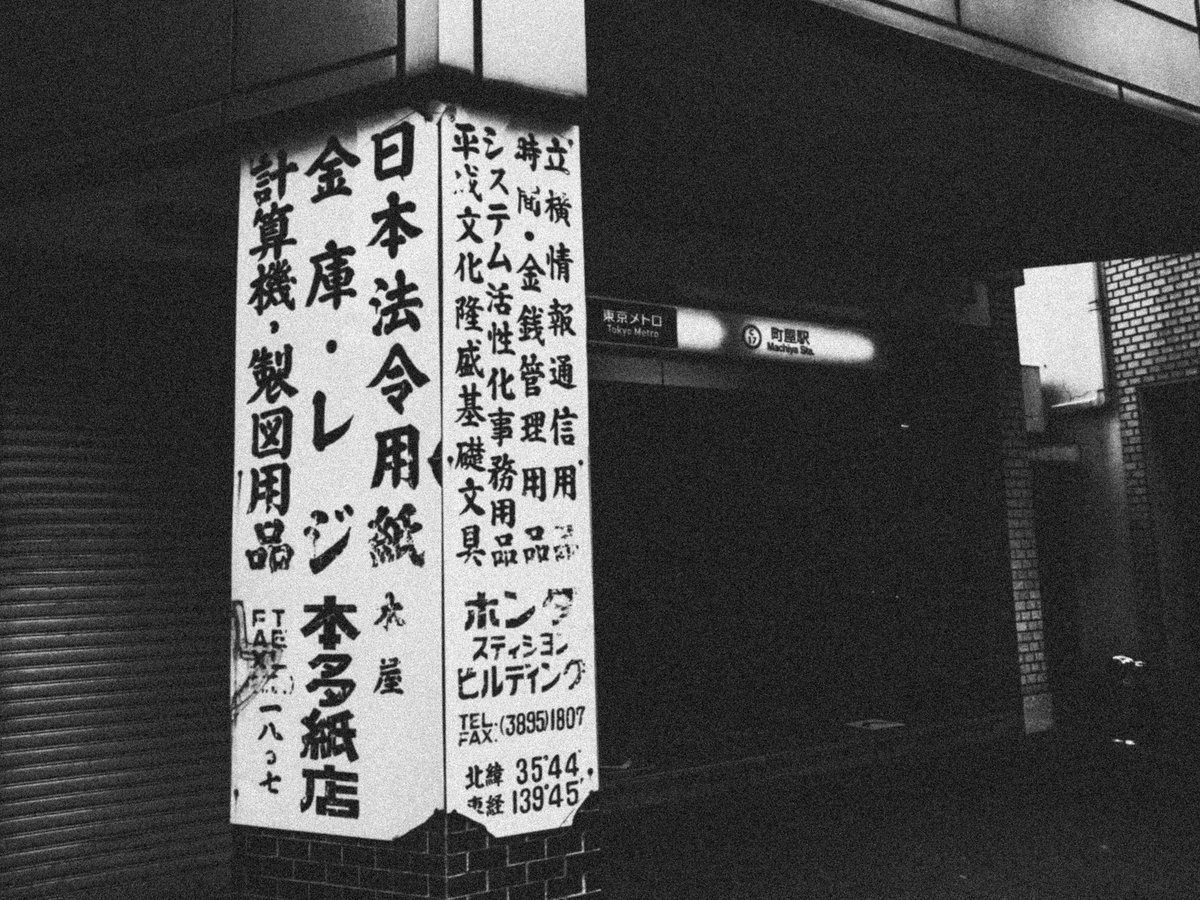 日本法令用紙
金庫・レジ
計算機，製図用品
屋
本多紙店
TEL
FAX
一八〇七
立横情報通信用品
時間・金銭管理用品
システム活性化事務用品
平成文化隆盛基礎文具
ホンダ
スティション
ビルディング
TEL.
FAX. (3895)1807
北緯 35°44'
東経 139°45'
東京メトロ
Tokyo Metro
C 17
町屋駅
Machiya Sta.